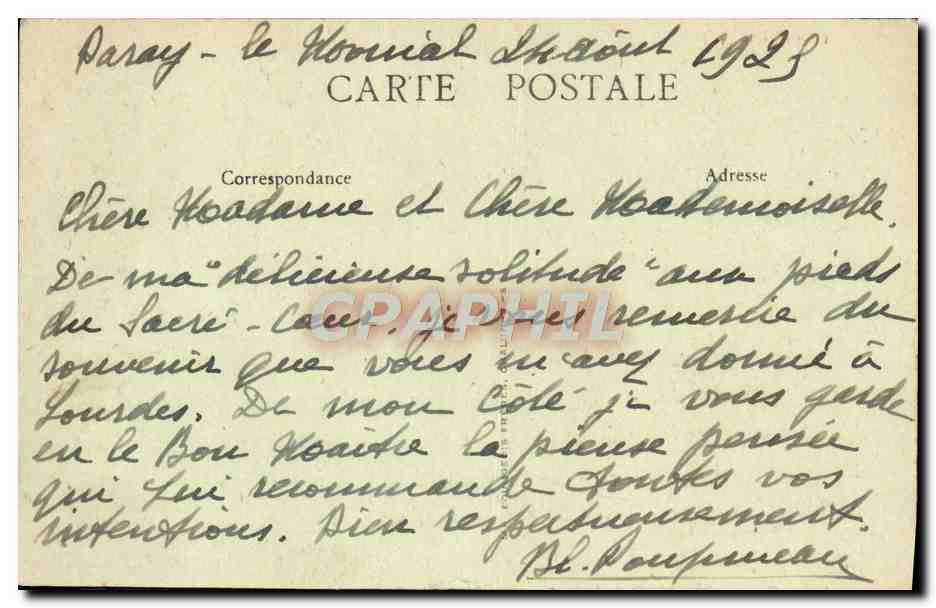 Paray-le Monial 24 août 1925
CARTE POSTALE
Correspondance
Adresse
Chère Madame et Chère Mademoiselle.
De ma "délicieuse solitude" aux pieds
du Sacré-Cœur, je vous remercie du
souvenir que vous m'avez donné à
Lourdes. De mon Côté je vous garde
en le Bon Maître la pieuse pensée
qui Lui recommande toutes vos
intentions. Bien respectueusement.
GRAPHIL